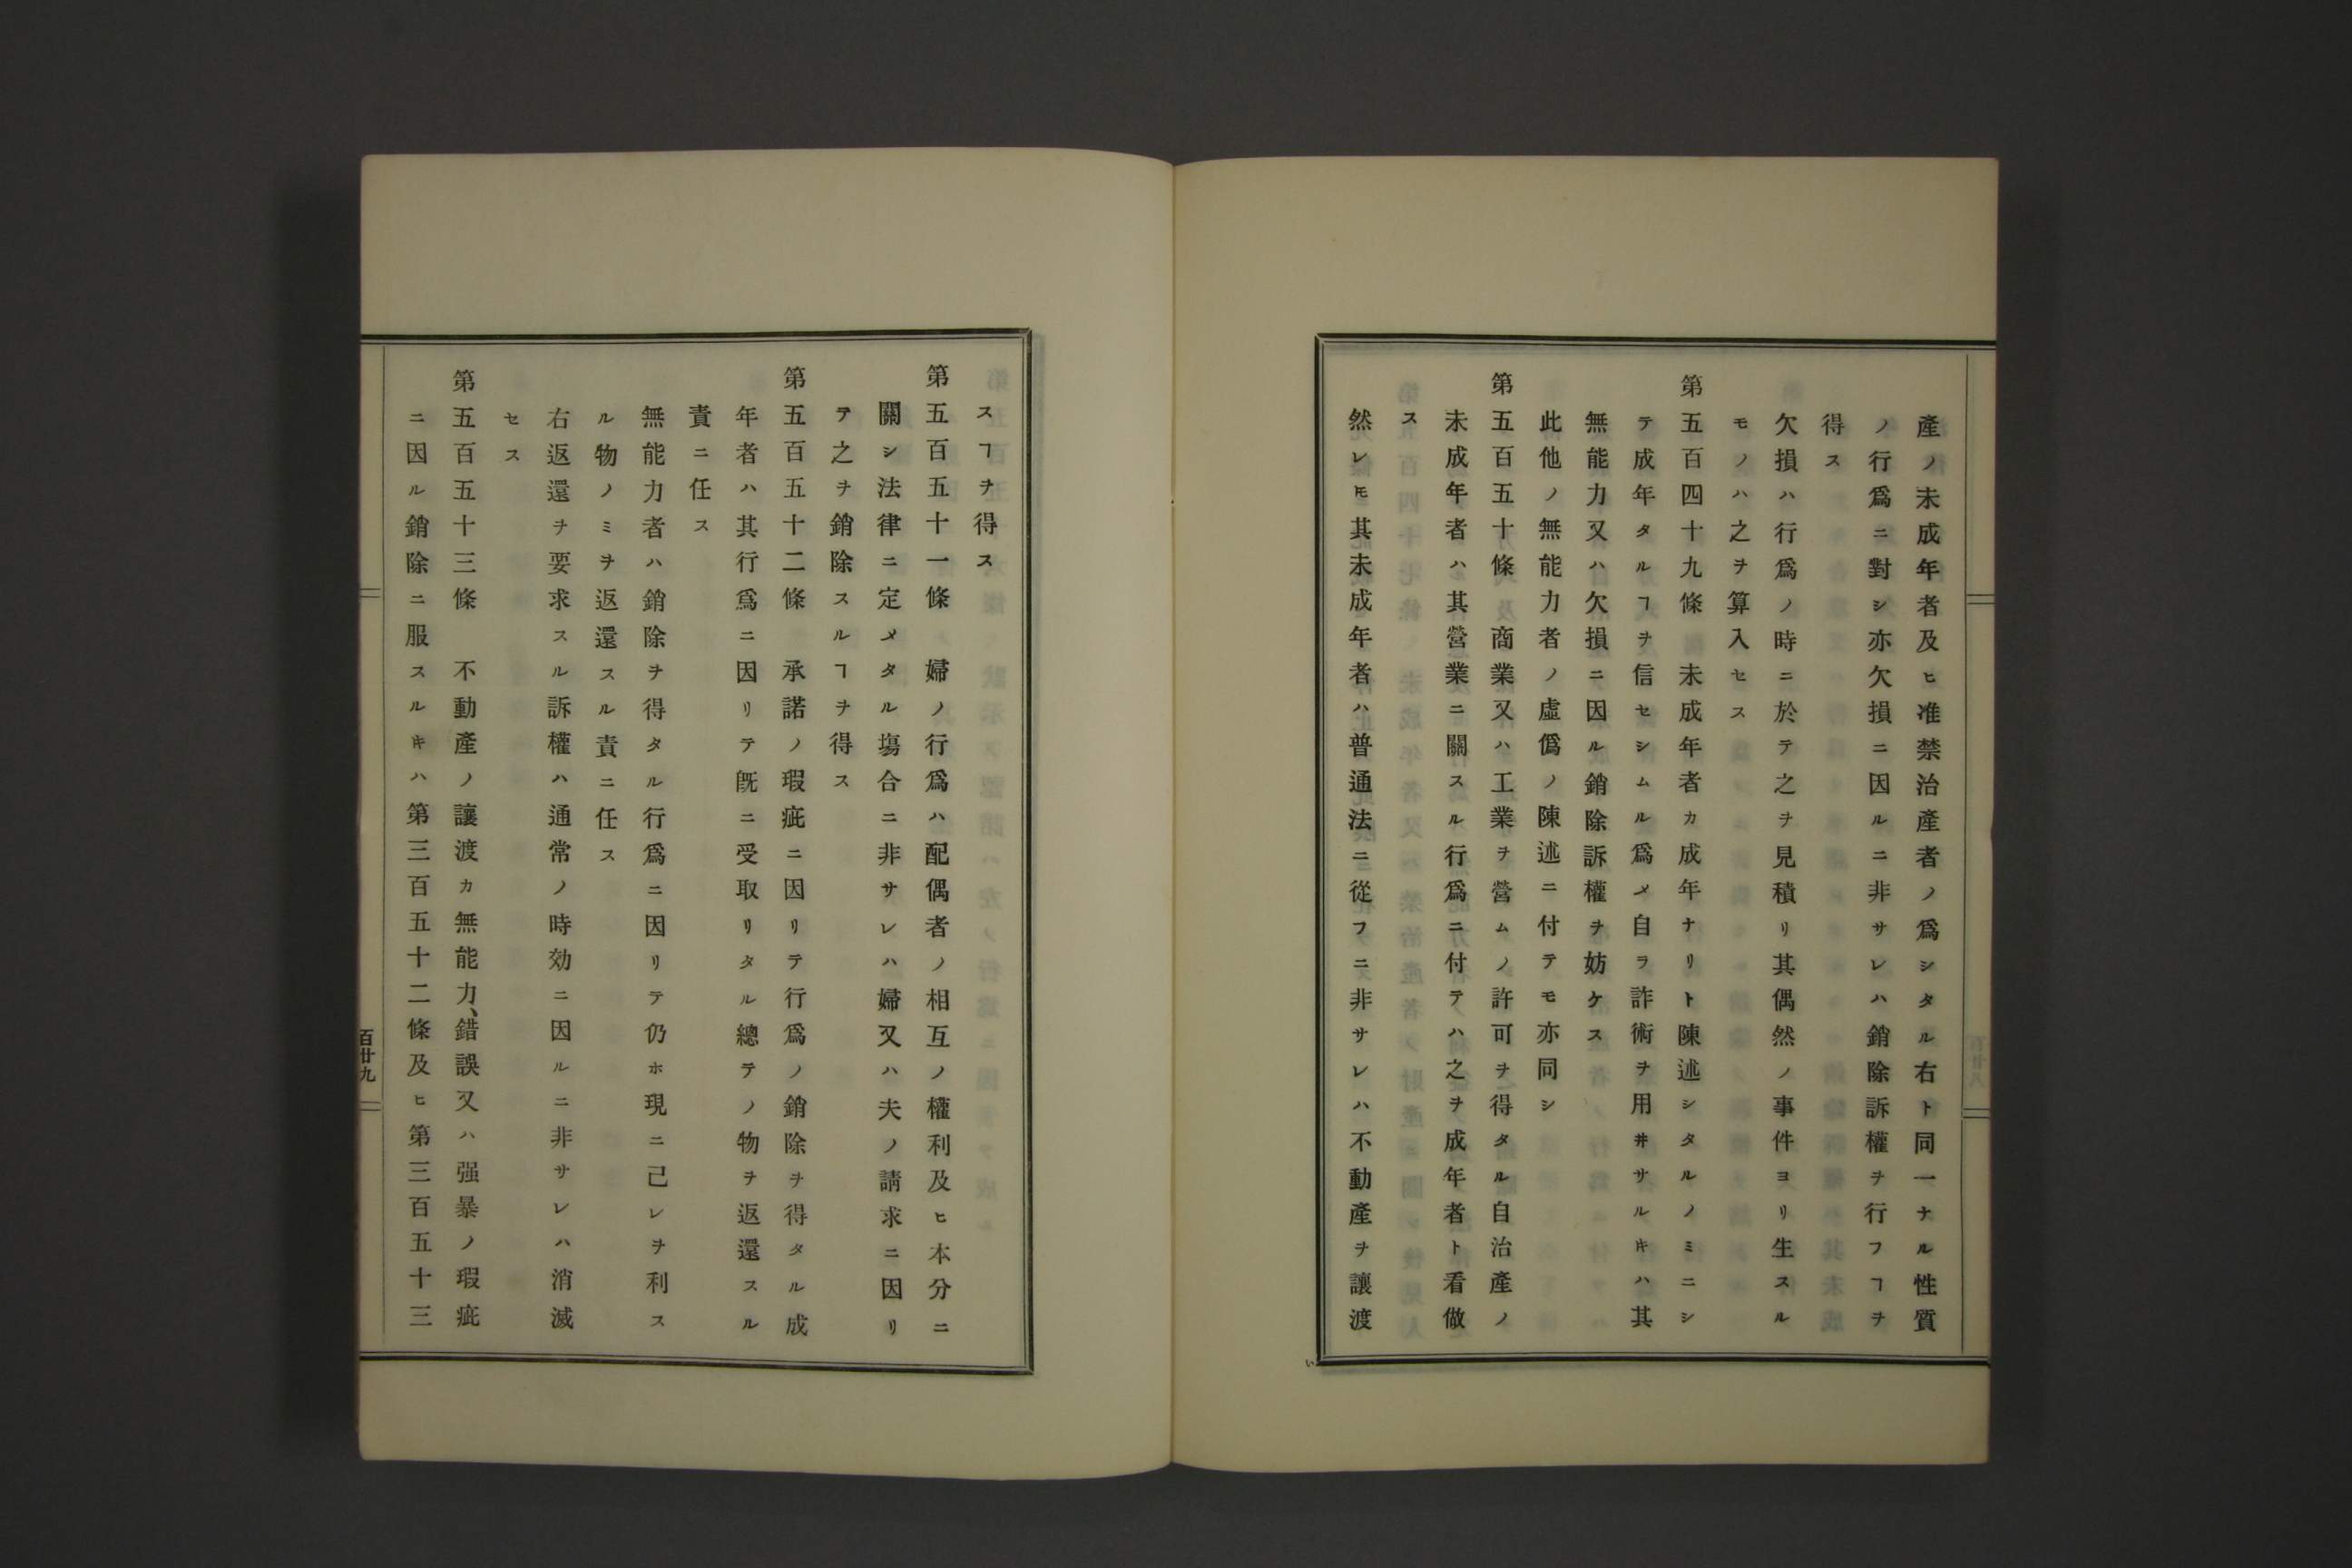 產ノ未成年者及ヒ准禁治產者ノ爲シタル右ト同一ナル性質
ノ行爲ニ對シ亦欠損ニ因ルニ非サレハ銷除訴權ヲ行フヿヲ
得ス
欠損ハ行爲ノ時ニ於テ之ヲ見積リ其偶然ノ事件ヨリ生スル
モノハ之ヲ算入セス
第五百四十九條　未成年者カ成年ナリト陳述シタルノミニシ
テ成年タルヿヲ信セシムル爲メ自ラ詐術ヲ用井サルキハ其
無能力又ハ欠損ニ因ル銷除訴權ヲ妨ケス
此他ノ無能力者ノ虛僞ノ陳述ニ付テモ亦同シ
第五百五十條　商業又ハ工業ヲ營ムノ許可ヲ得タル自治產ノ
未成年者ハ其營業ニ關スル行爲ニ付テハ之ヲ成年者ト看做
ス
然レ𪜈其未成年者ハ普通法ニ從フニ非サレハ不動產ヲ讓渡
スヿヲ得ス
第五百五十一條　婦ノ行爲ハ配偶者ノ相互ノ權利及ヒ本分ニ
關シ法律ニ定メタル塲合ニ非サレハ婦又ハ夫ノ請求ニ因リ
テ之ヲ銷除スルヿヲ得ス
第五百五十二條　承諾ノ瑕疵ニ因リテ行爲ノ銷除ヲ得タル成
年者ハ其行爲ニ因リテ旣ニ受取リタル總テノ物ヲ返還スル
責ニ任ス
無能力者ハ銷除ヲ得タル行爲ニ因リテ仍ホ現ニ己レヲ利ス
ル物ノミヲ返還スル責ニ任ス
右返還ヲ要求スル訴權ハ通常ノ時効ニ因ルニ非サレハ消滅
セス
第五百五十三條　不動產ノ讓渡カ無能力、錯誤又ハ强暴ノ瑕疵
ニ因ル銷除ニ服スルキハ第三百五十二條及ヒ第三百五十三
百廿九